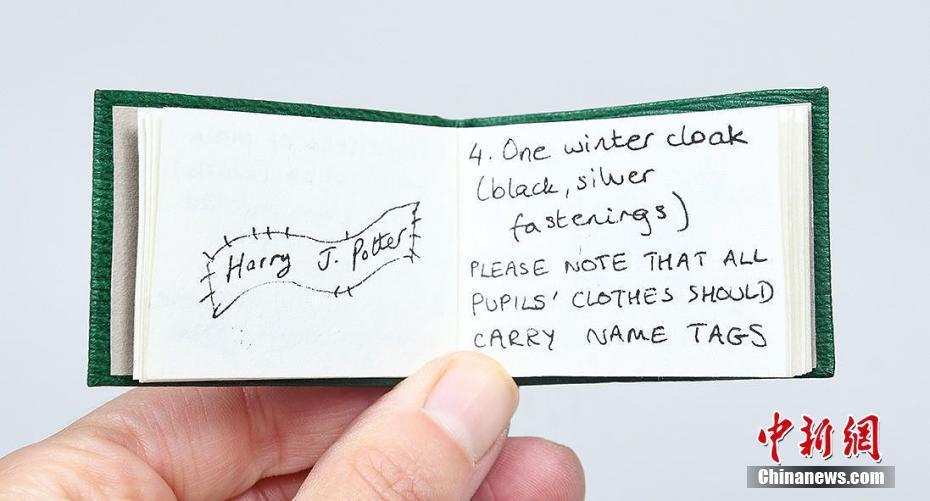 Harry J. Potter
4. One winter cloak
(black, silver
fastenings)
PLEASE NOTE THAT ALL
PUPILS' CLOTHES SHOULD
CARRY NAME TAGS
中新網
Chinanews.com